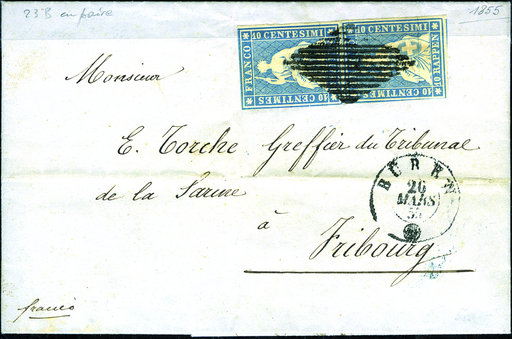 23B en paire
1855
10 CENTESIMI 10 CENTESIMI
FRANCO
10 RAPPEN
10 CENTIMES 10 CENTIMES
Monsieur
E. Torche Greffier du Tribunal
de la Sarine
à
Fribourg
BÜREN
26
MARS
55
franco